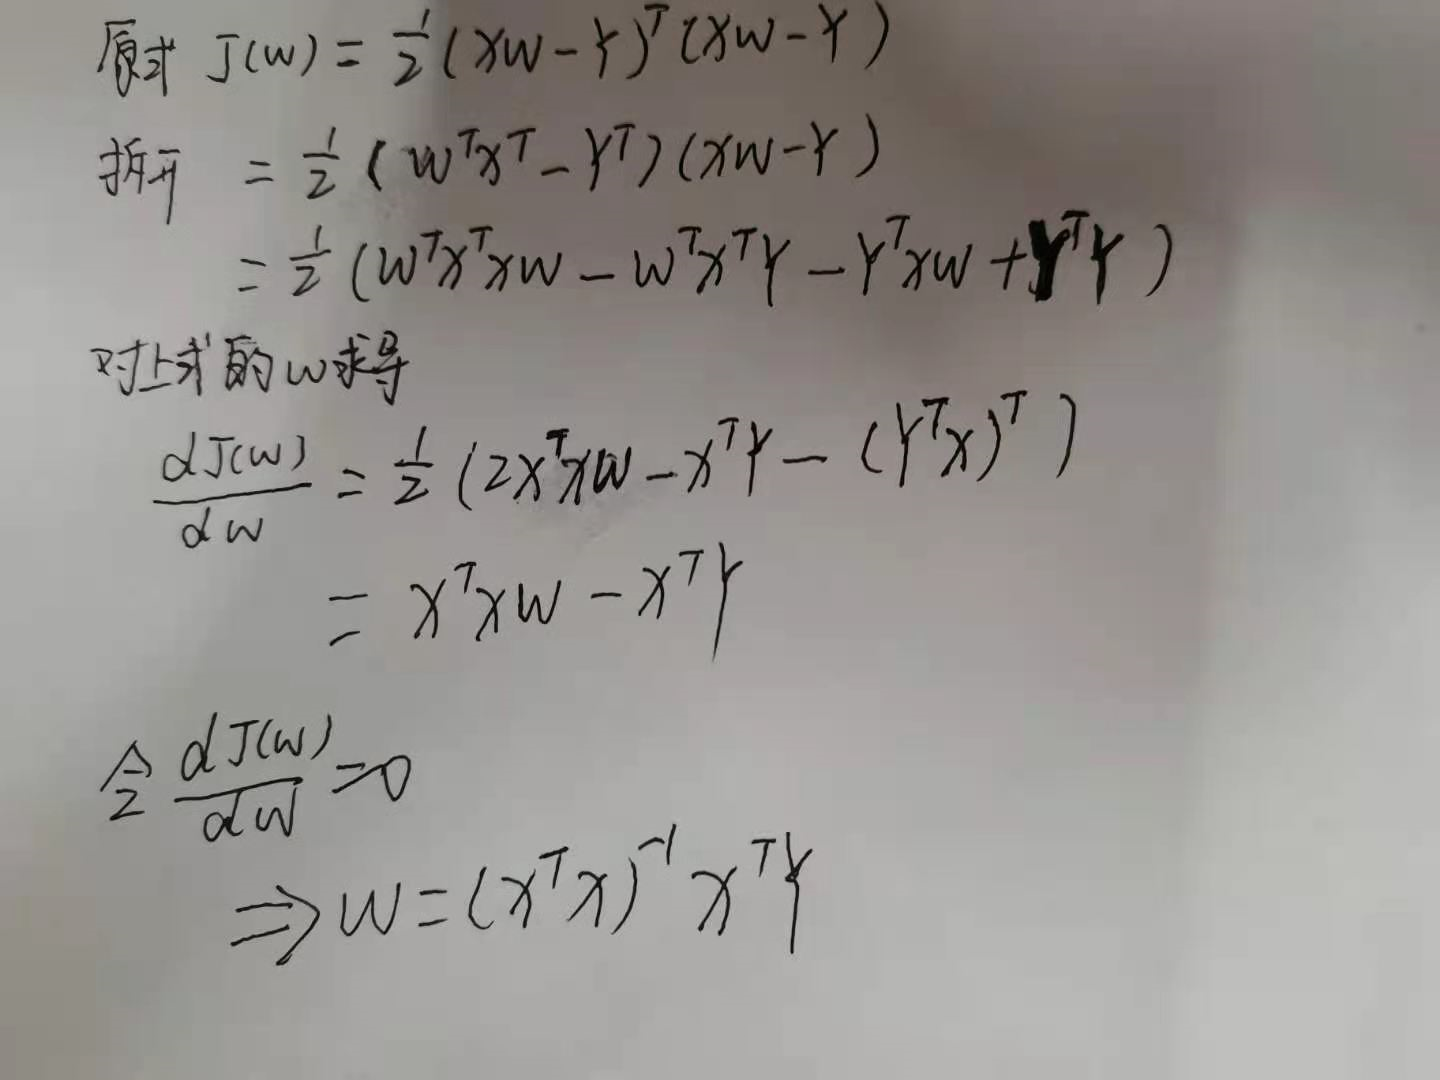 原式 J(w) = 1/2 (XW - Y)^T (XW - Y)
拆开 = 1/2 (W^T X^T - Y^T) (XW - Y)
= 1/2 (W^T X^T XW - W^T X^T Y - Y^T XW + Y^T Y)
对上式的w求导
dJ(w)/dw = 1/2 (2X^T XW - X^T Y - (Y^T X)^T)
= X^T XW - X^T Y
令 dJ(w)/dW = 0
⇒ W = (X^T X)^-1 X^T Y